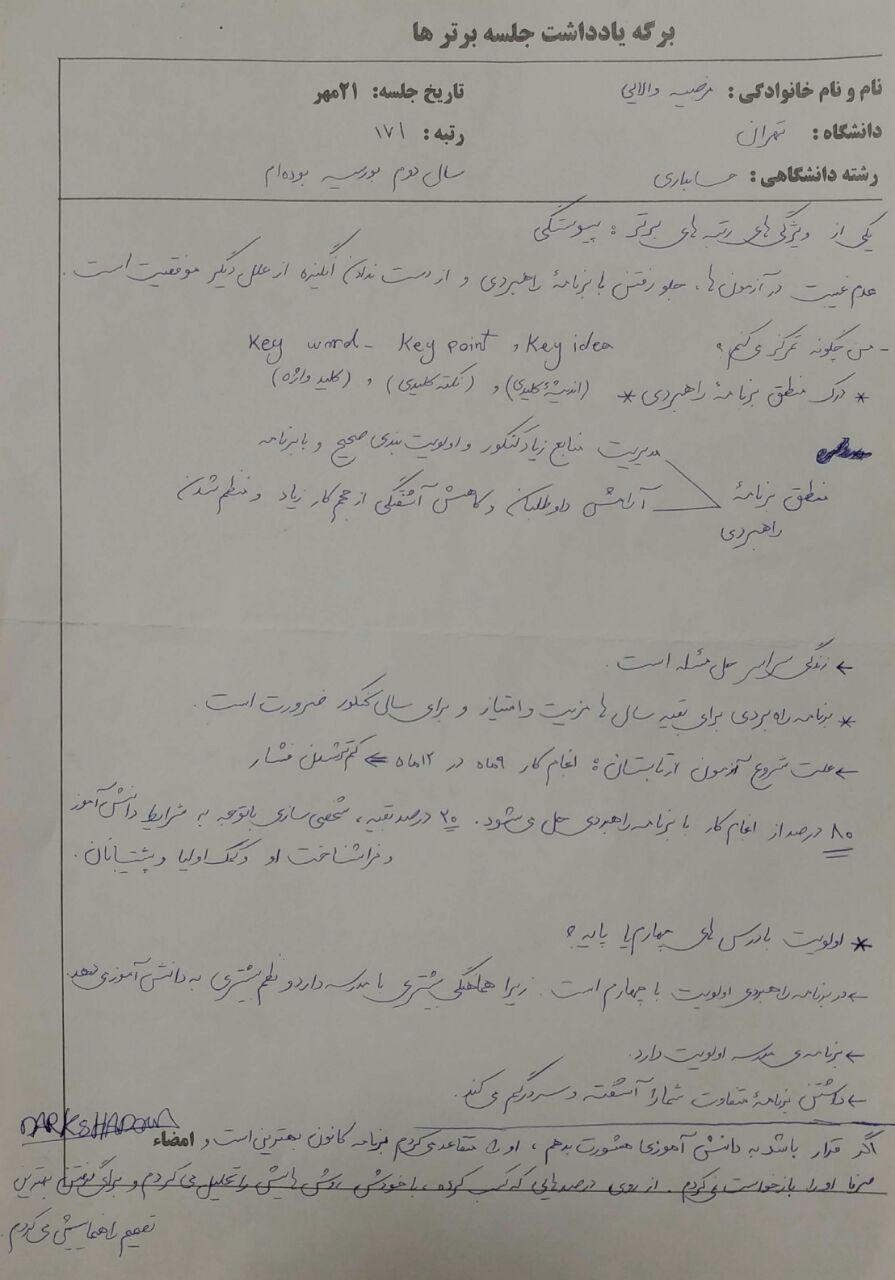 برگه یادداشت جلسه برتر ها
نام و نام خانوادگی : مرضیه والایی
تاریخ جلسه: ۲۱مهر
دانشگاه : تهران
رتبه : ۱۷۱
رشته دانشگاهی : حسابداری
سال دوم بورسیه بوده‌ام
یکی از ویژگی های رتبه های برتر : پیوستگی
عدم غیبت در آزمون ها، جلو رفتن با برنامهٔ راهبردی و از دست ندادن انگیزه از علل دیگر موفقیت است.
- من چگونه تمرکز می‌کنم؟ Key word - Key point , Key idea
* درک منطق برنامهٔ راهبردی * (اندیشهٔ کلیدی) و (نکته کلیدی) و (کلید واژه)
مدیریت منابع زیاد کنکور و اولویت بندی صحیح و با برنامه
منطق برنامهٔ راهبردی
آرامش داوطلبان و کاهش آشفتگی از حجم کار زیاد و منظم شدن
← زندگی سراسر حل مسئله است.
* برنامه راهبردی برای بقیه سال ها مزیت و امتیاز و برای سال کنکور ضرورت است.
← علت شروع آزمون از تابستان : انجام کار ۹ماه در ۱۲ماه ⇐ کم‌تر شدن فشار
۸۰ درصد از انجام کار با برنامه راهبردی حل می‌شود. ۲۰ درصد بقیه، شخصی سازی باتوجه به شرایط دانش‌آموز
و فراشناخت او و کمک اولیا و پشتیبانان.
* اولویت با درس های چهارم یا پایه؟
← در برنامه راهبردی اولویت با چهارم است. زیرا هماهنگی بیشتری با مدرسه دارد و نظم بیشتری به دانش آموز می‌دهد.
← برنامه‌ی مدرسه اولویت دارد.
← داشتن برنامهٔ متفاوت شما را آشفته و سردرگم می کند.
DARKSHADOW
اگر قرار باشد به دانش آموزی مشورت بدهم ، او را متقاعد می‌کردم برنامه کانون بهترین است و امضاء
صرفا او را بازخواست نمی‌کردم. از روی درصدهایی که کسب کرده، با خودش روش هایش را تحلیل می کردم و برای گرفتن بهترین
تصمیم راهنماییش می کردم.